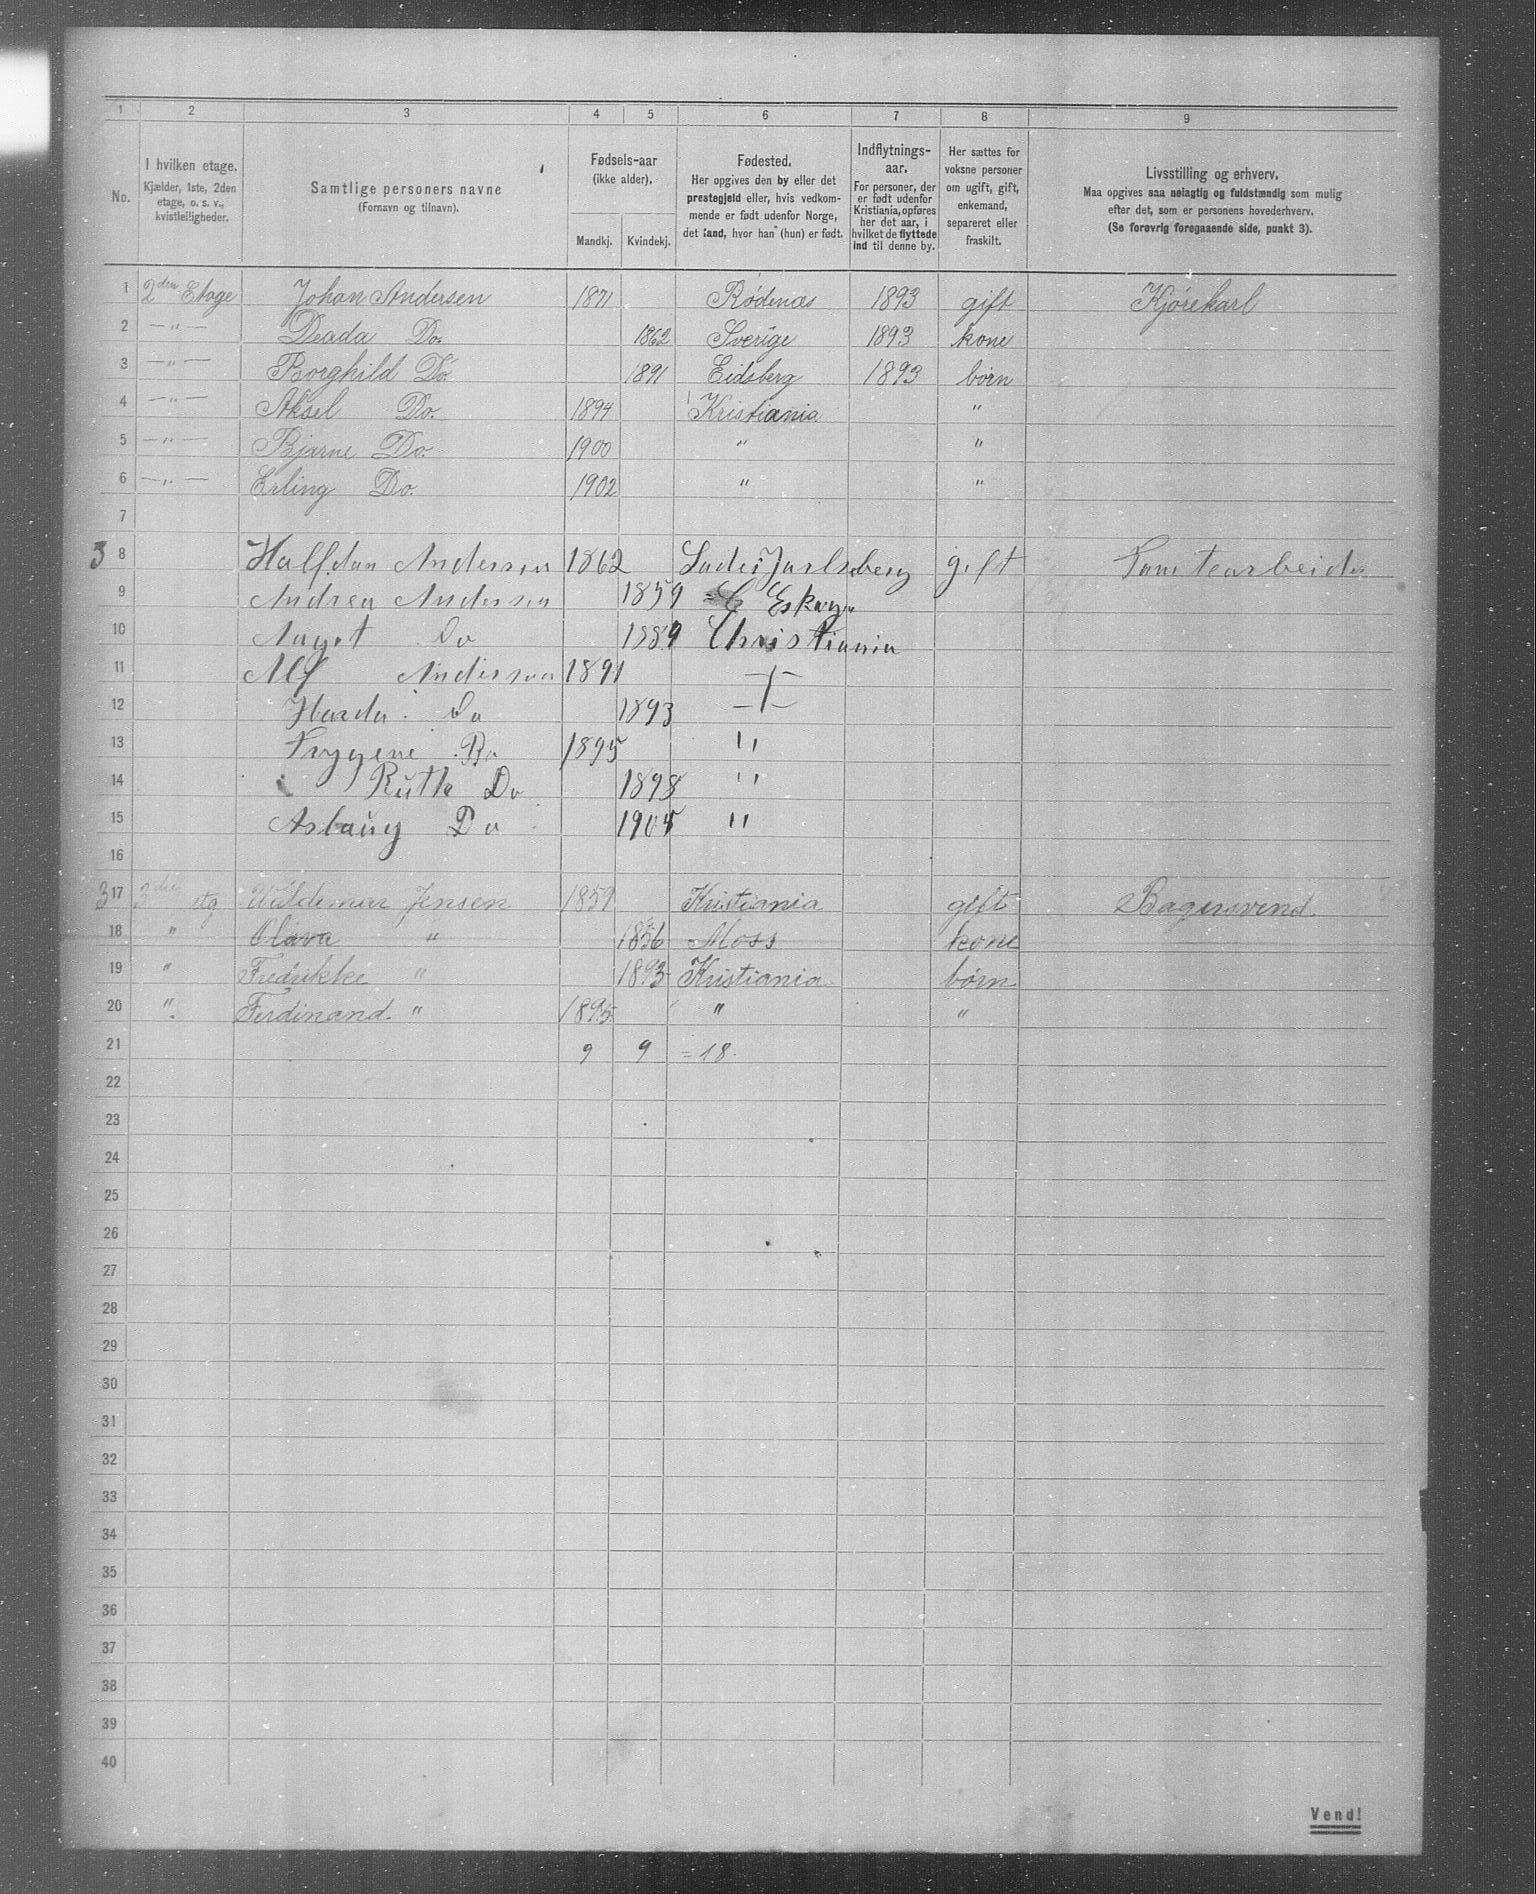 1 2 3 4 5 6 7 8 9
No.
I hvilken etage.
Kjælder, 1ste, 2den
etage, o. s. v.,
kvistleiligheder.
Samtlige personers navne
(Fornavn og tilnavn).
Fødsels-aar
(ikke alder).
Mandkj. Kvindekj.
Fødested.
Her opgives den by eller det
prestegjeld eller, hvis vedkom-
mende er født udenfor Norge,
det land, hvor han (hun) er født.
Indflytnings-
aar.
For personer, der
er født udenfor
Kristiania, opføres
her det aar, i
hvilket de flyttede
ind til denne by.
Her sættes for
voksne personer
om ugift, gift,
enkemand,
separeret eller
fraskilt.
Livsstilling og erhverv.
Maa opgives saa nøiagtig og fuldstændig som mulig
efter det, som er personens hovederhverv.
(Se forøvrig foregaaende side, punkt 3).
1 2den Etage Johan Andersen 1871 Rødenæs 1893 gift Kjørekarl
2 — " — Deada Do. 1862 Sverige 1893 kone
3 — " — Borghild Do 1891 Eidsberg 1893 børn
4 — " — Aksel Do. 1894 Kristiania "
5 — " — Bjarne Do. 1900 " "
6 — " — Erling Do. 1902 " "
7
3 8 Halfdan Andersen 1862 Jarlsberg gift
9 Andrea Andersen 1859
10 Do 1889 Christiania
11 Alf Andersen 1891 -/-
12 Do 1893 -/-
13 Do 1895 "
14 Ruth Do 1898 "
15 Aslaug Do 1905 "
16
3 17 3die etg Valdemar Jensen 1859 Kristiania gift Bagersvend
18 " Olava " 1856 Moss kone
19 " Fredrikke " 1893 Kristiania børn
20 " Ferdinand " 1895 " "
21 9 9 = 18.
22
23
24
25
26
27
28
29
30
31
32
33
34
35
36
37
38
39
40
Vend!